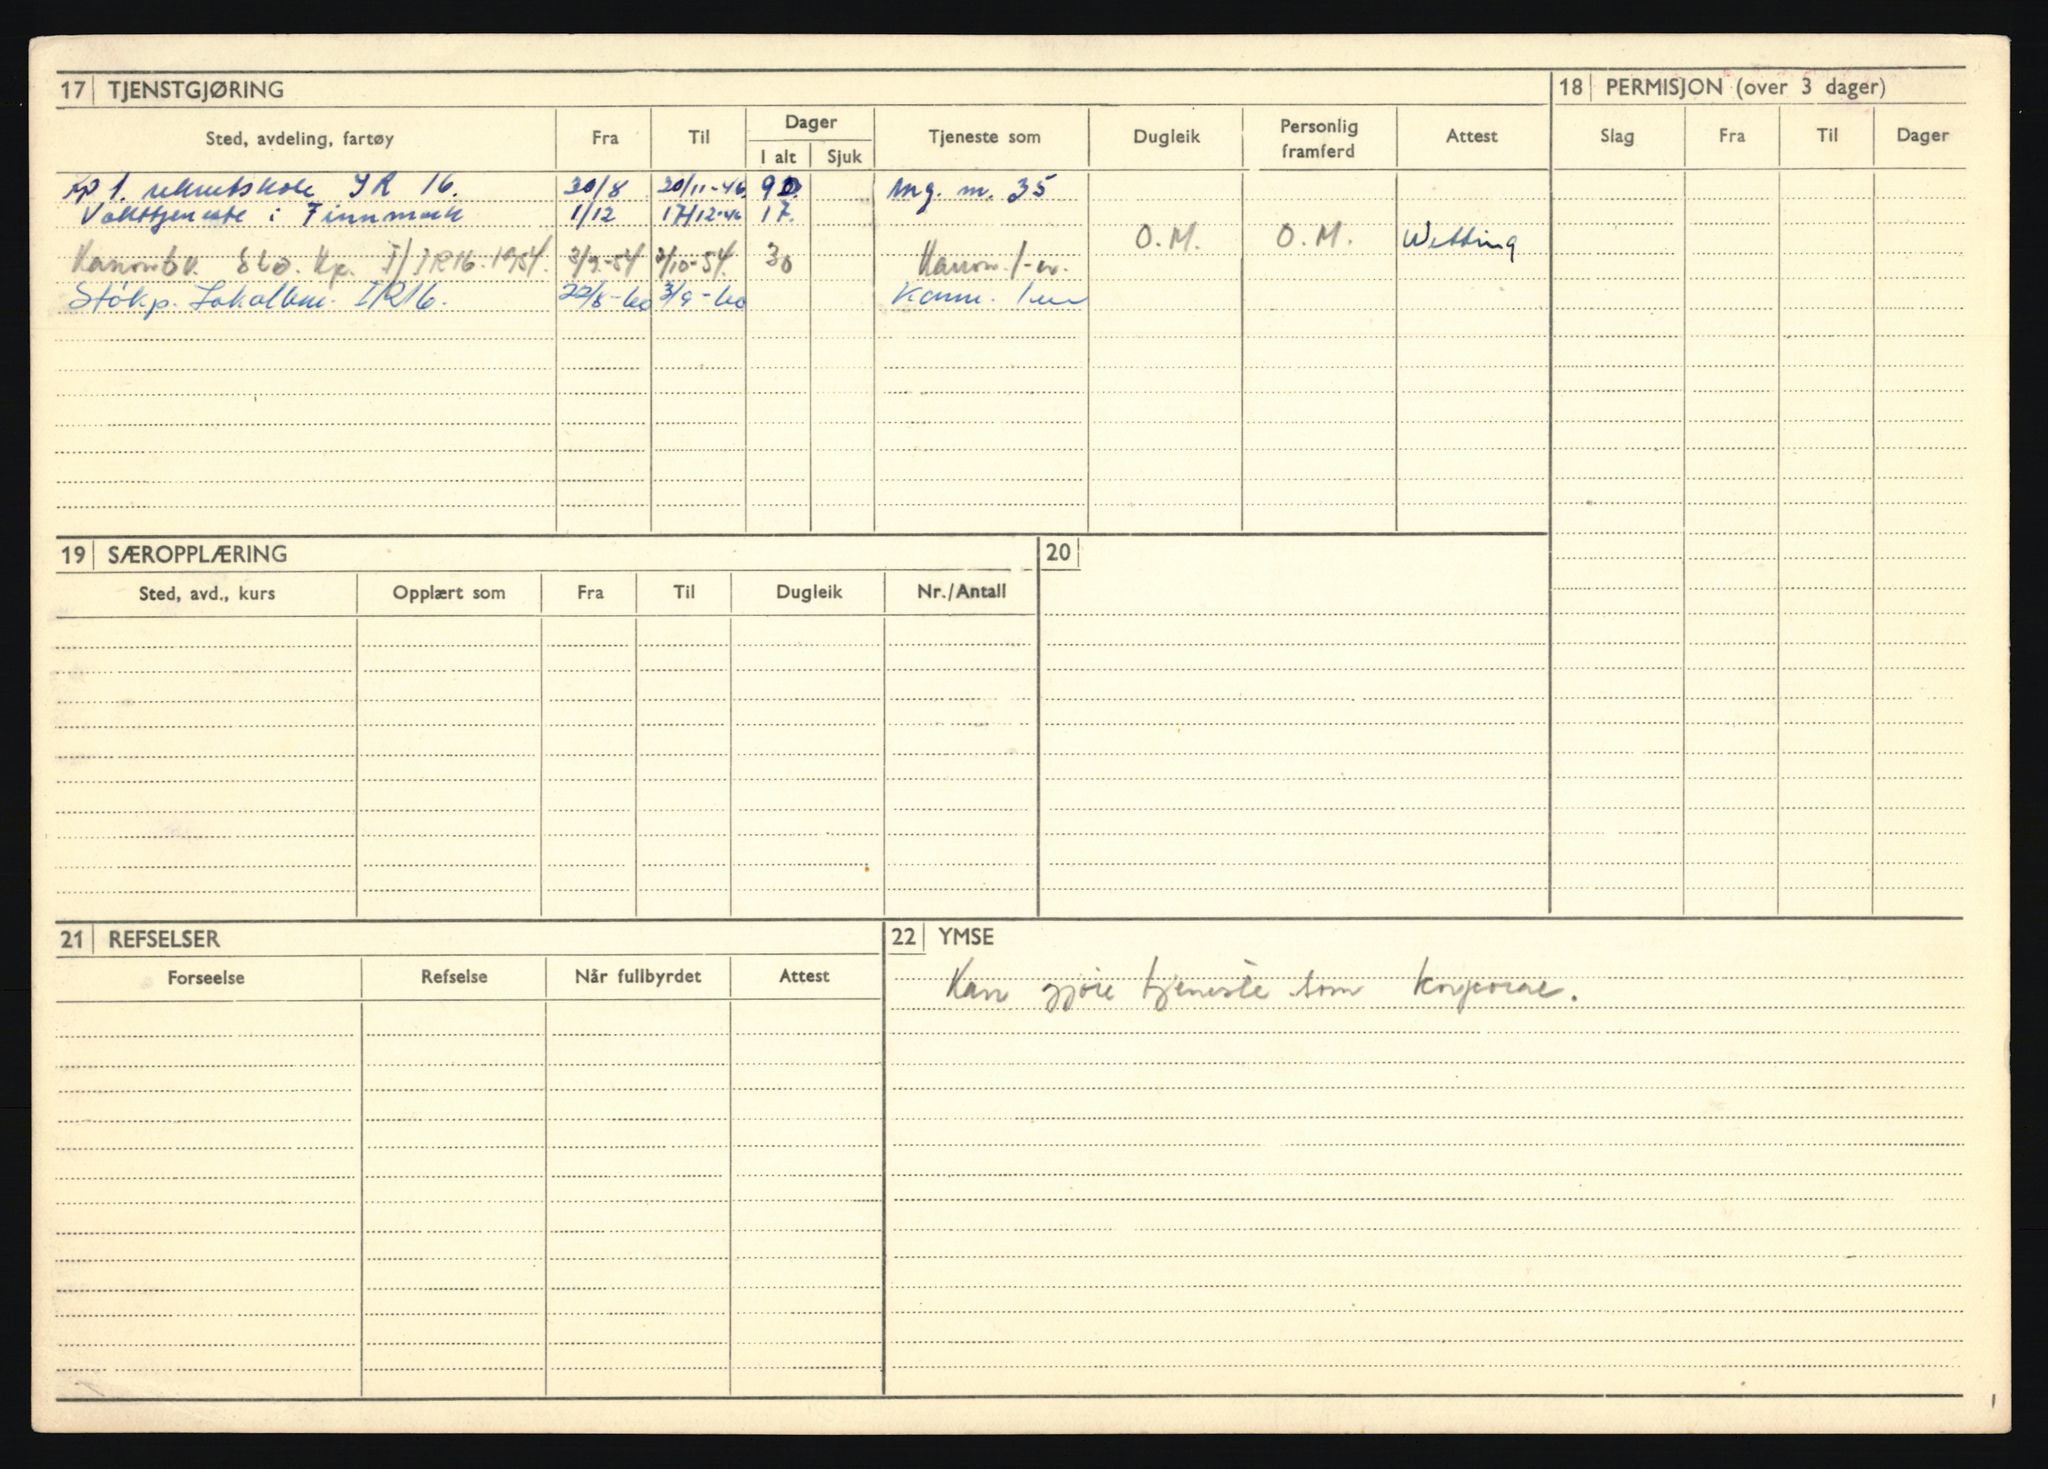 17 TJENSTGJØRING
18 PERMISJON (over 3 dager)
Sted, avdeling, fartøy Fra Til Dager Tjeneste som Dugleik Personlig framferd Attest Slag Fra Til Dager
I alt Sjuk
Kp 1. rekrutskole IR 16. 30/8 20/11-46 90. mg. m. 35
Vakttjeneste i Finnmark 1/12 17/12-46 17.
Kanonbv. Stö. Kp. I/IR16-1954. 3/9-54 2/10-54 30 O.M. O.M. Wetting
Stökp. Lokalbn. IR16. 22/8-60 3/9-60
19 SÆROPPLÆRING
20
Sted, avd., kurs Opplært som Fra Til Dugleik Nr./Antall
21 REFSELSER
22 YMSE
Forseelse Refselse Når fullbyrdet Attest
Kan gjøre tjeneste som korporal.